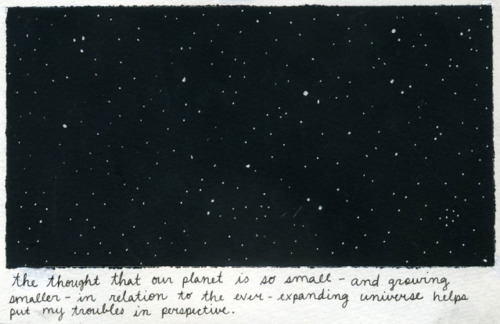 the thought that our planet is so small - and growing
smaller - in relation to the ever - expanding universe helps
put my troubles in perspective.